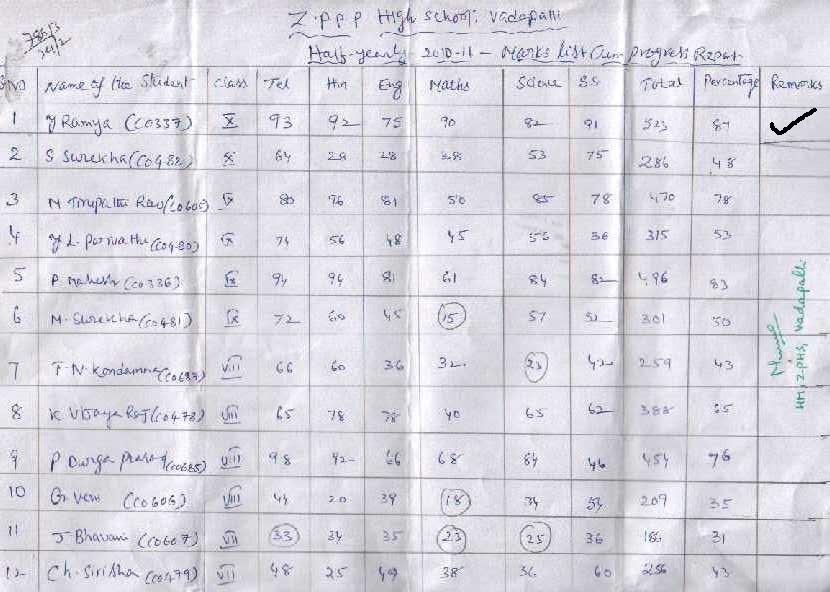 Z.P.P.P High School, Vadapalli
Half-yearly 2010-11 - Marks List Cum progress Report
S.No Name of the Student Class Tel Hin Eng Maths Science S.S Total Percentage Remarks
1 Y Ramya (C0337) X 93 92 75 90 82 91 523 87 ✓
2 S Surekha (C0482) X 64 28 28 38 53 75 286 48
3 N Tirupathi Rao (C0605) IX 80 76 81 50 85 78 470 78
4 Y L. Parvathi (C0480) IX 74 56 48 45 56 36 315 53
5 P Mahesh (C0336) IX 94 94 81 61 84 82 496 83
6 M. Surekha (C0481) IX 72 60 45 15 57 52 301 50
7 T. N. Kondamma VIII 66 60 36 32 23 42 259 43
8 K Vijaya Raj (C0478) VIII 65 78 78 40 65 62 388 65
9 P Durga Prasad (C0685) VIII 98 92 66 68 84 46 454 76
10 G. Veni (C0606) VIII 44 20 39 18 34 54 209 35
11 J Bhavani (C0607) VII 33 34 35 23 25 36 186 31
12 Ch. Sirisha (C0479) VII 48 25 49 38 36 60 256 43
HM, Z.PHS, Vadapalli